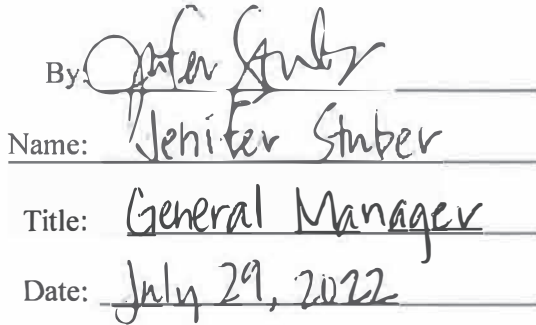 By: Jenifer Stuber
Name: Jenifer Stuber
Title: General Manager
Date: July 29, 2022